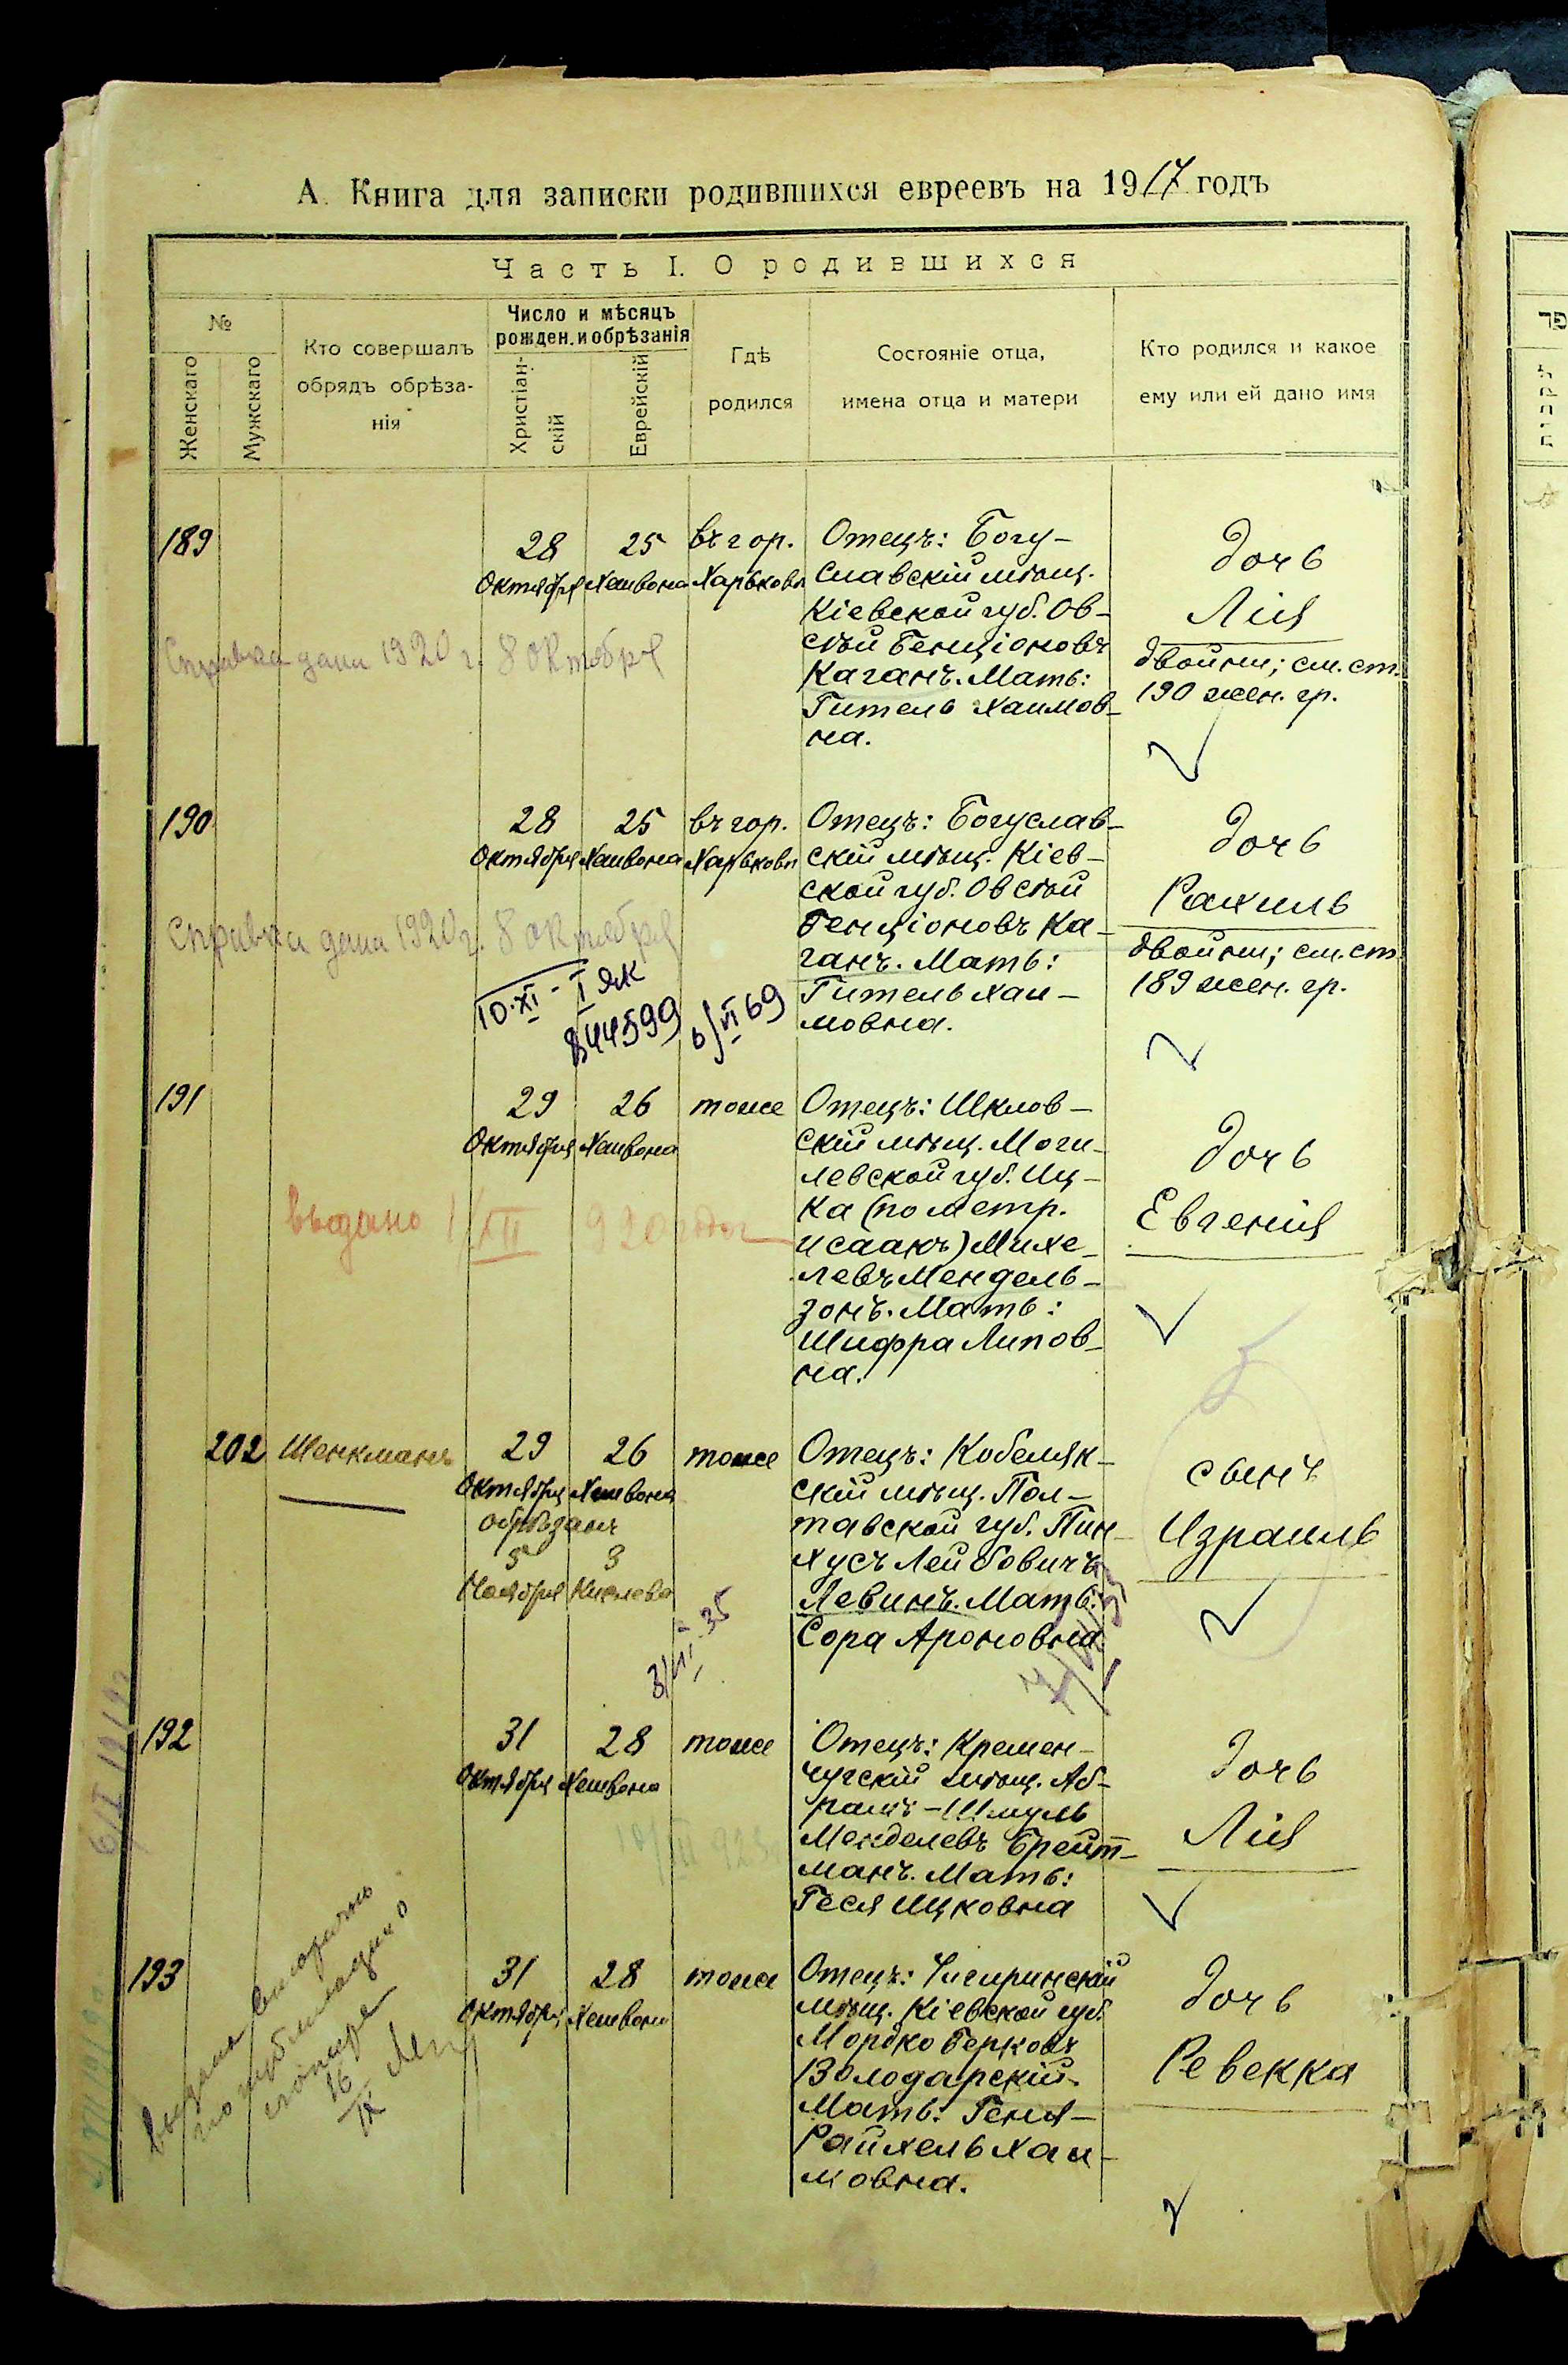 А. Книга для записки родившихся евреевъ на 1917 годъ
Часть I. О родившихся
№
Женскаго
Мужскаго
Кто совершалъ
обрядъ обрѣза-
нія
Число и мѣсяцъ
рожден. и обрѣзанія
Христіан-
скій
Еврейскій
Гдѣ
родился
Состояніе отца,
имена отца и матери
Кто родился и какое
ему или ей дано имя
189
28
Октября
25
Хешвона
въ гор.
Харьковѣ
Отецъ: Богу-
славскій мѣщ.
Кіевской губ. Ов-
сѣй Бенціоновъ
Каганъ. Мать:
Гитель Хаимов-
на.
дочь
Лія
двойни; см. ст.
190 жен. гр.
Справка дана 1920 г. 8 октября
190
28
Октября
25
Хешвона
въ гор.
Харьковѣ
Отецъ: Богуслав-
скій мѣщ. Кіев-
ской губ. Овсѣй
Бенціоновъ Ка-
ганъ. Мать:
Гитель Хаи-
мовна.
дочь
Рахиль
двойни; см. ст.
189 жен. гр.
Справка дана 1920 г. 8 октября
10.XI - I ЯК
844599
6/VI 69
191
29
Октября
26
Хешвона
тоже
Отецъ: Шклов-
скій мѣщ. Моги-
левской губ. Иц-
ка (по метр.
Исаакъ) Михе-
левъ Мендель-
зонъ. Мать:
Шифра Липов-
на.
дочь
Евгенія
выдано 1/XII 920 года
202
Шенкманъ
29
Октября
26
Хешвона
обрѣзанъ
5
Ноября
3
Кислева
тоже
Отецъ: Кобеляк-
скій мѣщ. Пол-
тавской губ. Пин-
хусъ Лейбовичъ
Левинъ. Мать:
Сора Ароновна
сынъ
Израиль
192
31
Октября
28
Хешвона
тоже
Отецъ: Кремен-
чугскій мѣщ. Аб-
рамъ-Шмуль
Менделевъ Брейт-
манъ. Мать:
Геся Ицковна
дочь
Лія
193
31
Октября
28
Хешвона
тоже
Отецъ: Чигиринскій
мѣщ. Кіевской губ.
Мордко Берковъ
Володарскій.
Мать: Геня-
Райхель Хаи-
мовна.
дочь
Ревекка